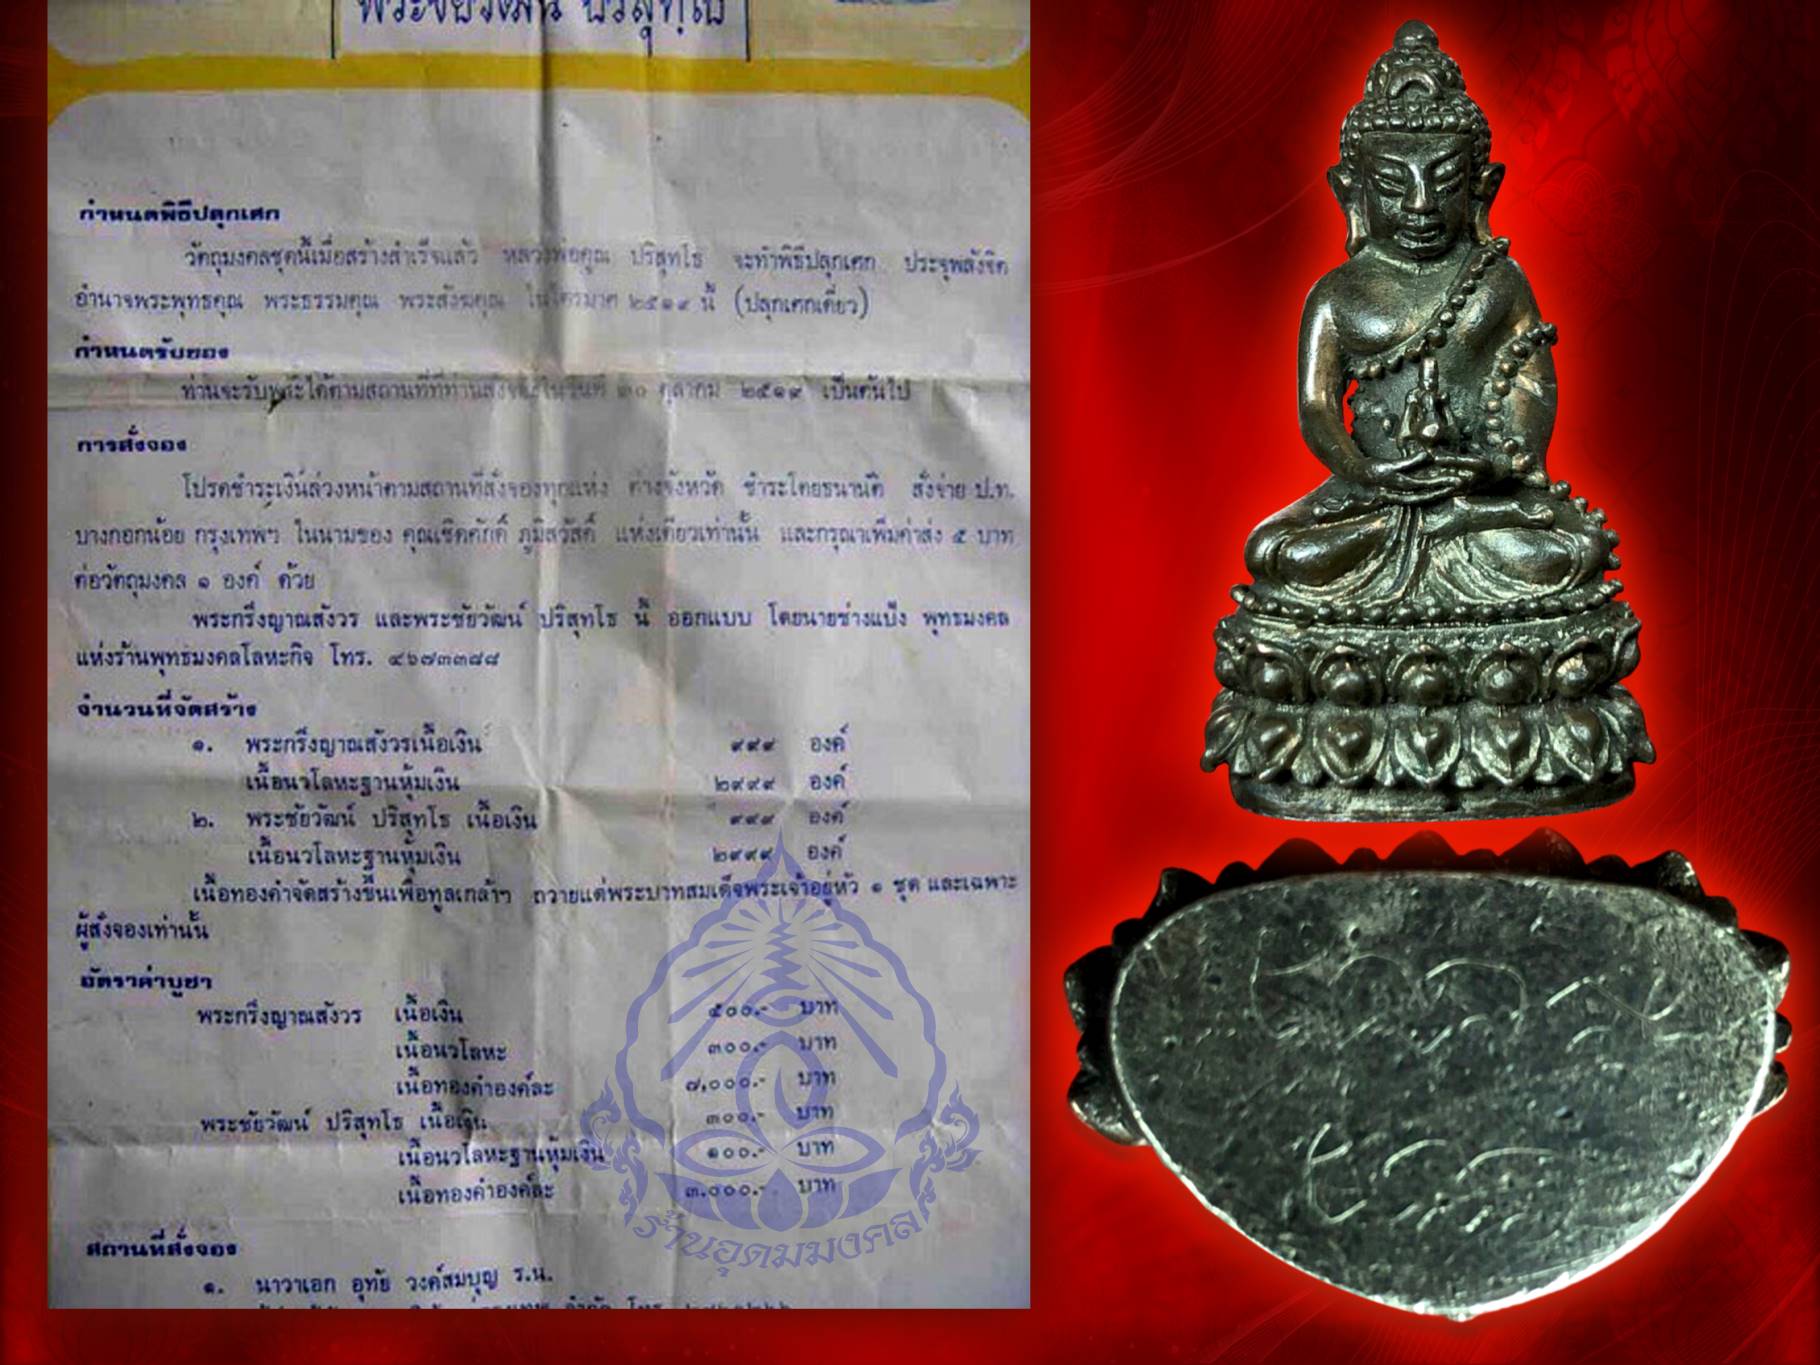 พระชัยวัฒน์ ปริสุทโธ
กำหนดพิธีปลุกเศก
วัตถุมงคลชุดนี้เมื่อสร้างสำเร็จแล้ว หลวงพ่อคูณ ปริสุทโธ จะทำพิธีปลุกเศก ประจุพลังจิต
อำนาจพระพุทธคุณ พระธรรมคุณ พระสังฆคุณ ในไตรมาศ ๒๕๑๙ นี้ (ปลุกเศกเดี่ยว)
กำหนดรับของ
ท่านจะรับพระได้ตามสถานที่ที่ท่านสั่งจองในวันที่ ๓๐ ตุลาคม ๒๕๑๙ เป็นต้นไป
การสั่งจอง
โปรดชำระเงินล่วงหน้าตามสถานที่สั่งจองทุกแห่ง ต่างจังหวัด ชำระโดยธนาณัติ สั่งจ่าย ป.ท.
บางกอกน้อย กรุงเทพฯ ในนามของ คุณเชิดศักดิ์ ภูมิสวัสดิ์ แห่งเดียวเท่านั้น และกรุณาเพิ่มค่าส่ง ๕ บาท
ต่อวัตถุมงคล ๑ องค์ ด้วย
พระกริ่งญาณสังวร และพระชัยวัฒน์ ปริสุทโธ นี้ ออกแบบ โดยนายช่างแป๊ง พุทธมงคล
แห่งร้านพุทธมงคลโลหะกิจ โทร. ๔๖๗๓๓๘๘
จำนวนที่จัดสร้าง
๑. พระกริ่งญาณสังวรเนื้อเงิน ๙๙๙ องค์
เนื้อนวโลหะฐานหุ้มเงิน ๒๙๙๙ องค์
๒. พระชัยวัฒน์ ปริสุทโธ เนื้อเงิน ๙๙๙ องค์
เนื้อนวโลหะฐานหุ้มเงิน ๒๙๙๙ องค์
เนื้อทองคำจัดสร้างขึ้นเพื่อทูลเกล้าฯ ถวายแด่พระบาทสมเด็จพระเจ้าอยู่หัว ๑ ชุด และเฉพาะ
ผู้สั่งจองเท่านั้น
อัตราค่าบูชา
พระกริ่งญาณสังวร เนื้อเงิน ๕๐๐.- บาท
เนื้อนวโลหะ ๓๐๐.- บาท
เนื้อทองคำองค์ละ ๗,๐๐๐.- บาท
พระชัยวัฒน์ ปริสุทโธ เนื้อเงิน ๓๐๐.- บาท
เนื้อนวโลหะฐานหุ้มเงิน ๑๐๐.- บาท
เนื้อทองคำองค์ละ ๓,๐๐๐.- บาท
สถานที่สั่งจอง
๑. นาวาเอก อุทัย วงค์สมบุญ ร.น.
ร้านอุดมมงคล